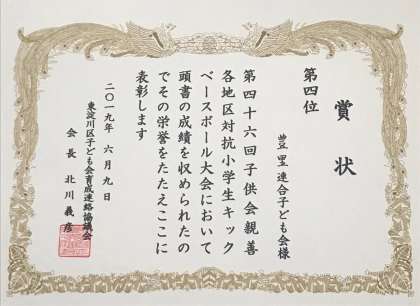 賞状
第四位
豊里連合子ども会様
第四十六回子供会親善
各地区対抗小学生キック
ベースボール大会において
頭書の成績を収められたの
でその栄誉をたたえここに
表彰します
二〇一九年 六月 九日
東淀川区子ども会育成連絡協議会
会長 北川 義彦